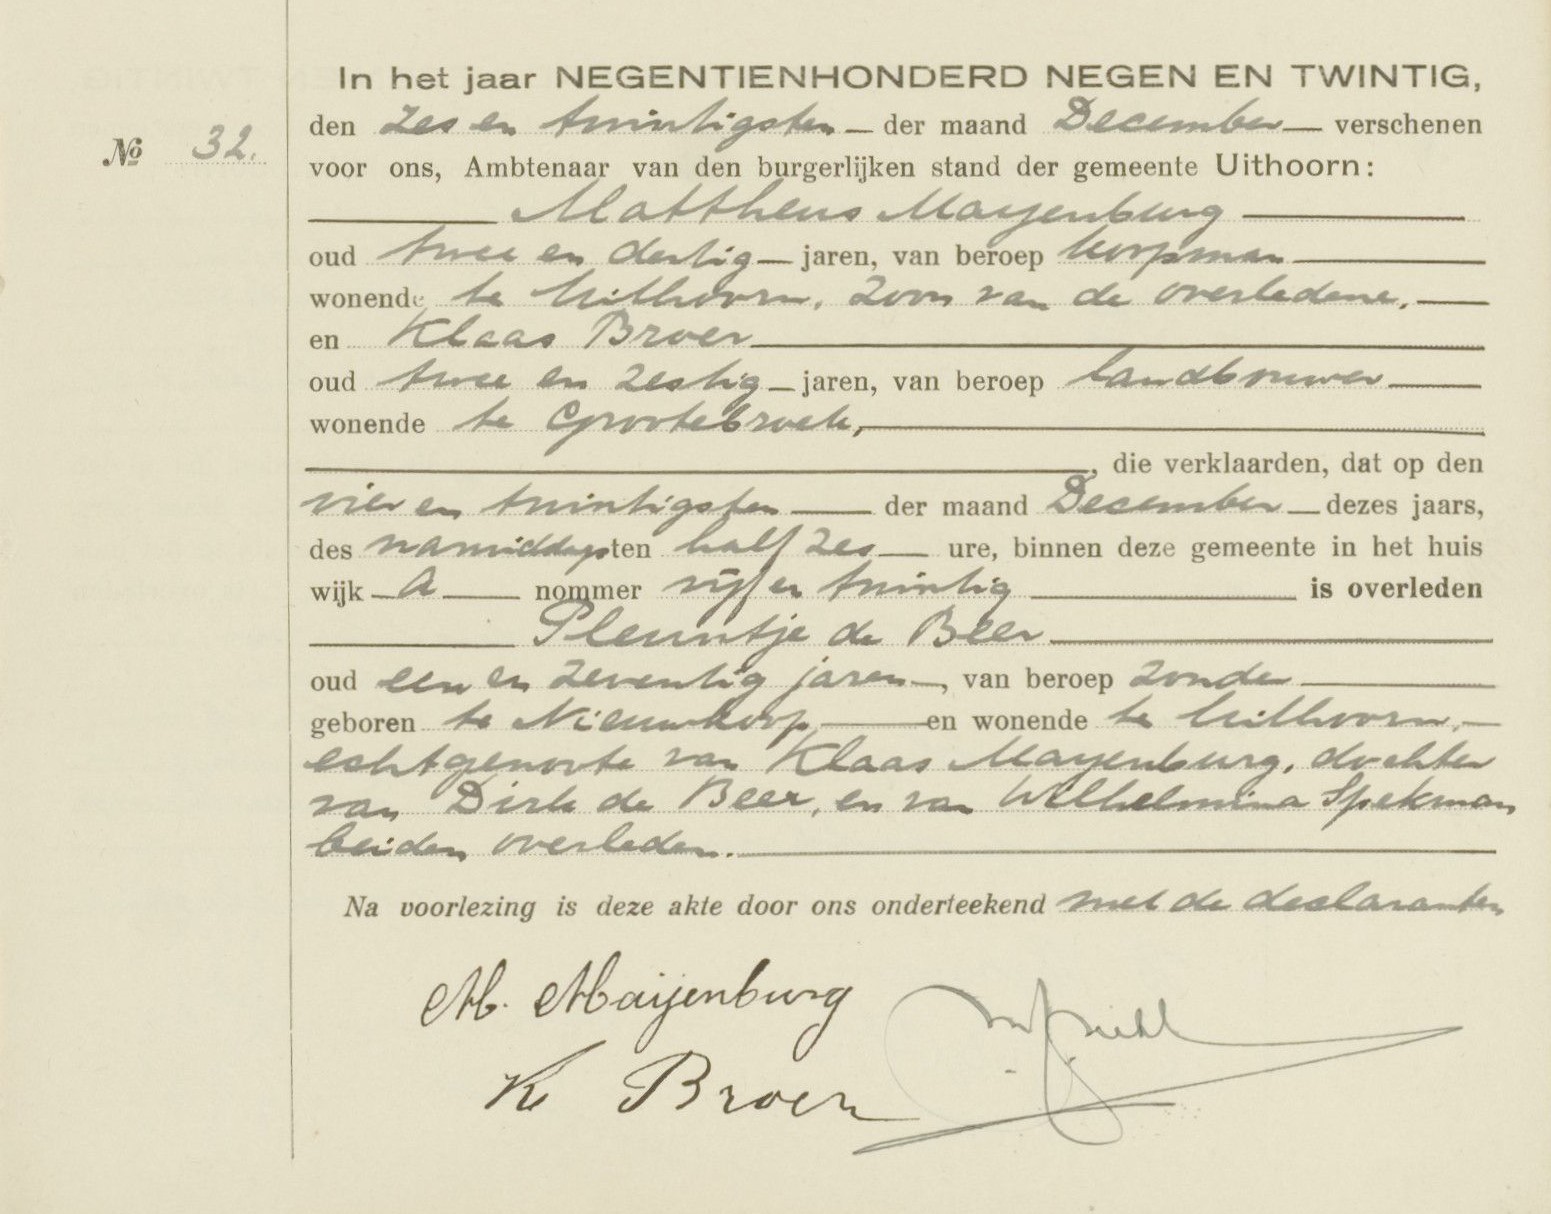 In het jaar NEGENTIENHONDERD NEGEN EN TWINTIG,
den zes en twintigsten — der maand December — verschenen
№ 32.
voor ons, Ambtenaar van den burgerlijken stand der gemeente Uithoorn:
Mattheus Mayenburg
oud twee en dertig — jaren, van beroep koopman
wonende te Uithoorn, zoon van de overledene,
en Klaas Broer
oud twee en zestig — jaren, van beroep landbouwer
wonende te Grootebroek,
, die verklaarden, dat op den
vier en twintigsten — der maand December — dezes jaars,
des namiddags ten half zes — ure, binnen deze gemeente in het huis
wijk — A — nommer vijf en twintig — is overleden
Pleuntje de Beer
oud een en zeventig jaren —, van beroep zonder
geboren te Nieuwkoop — en wonende te Uithoorn, —
echtgenoote van Klaas Mayenburg, dochter
van Dirk de Beer, en van Wilhelmina Spekman
beiden overleden.
Na voorlezing is deze akte door ons onderteekend met de declaranten
M. Maijenburg
K Broer